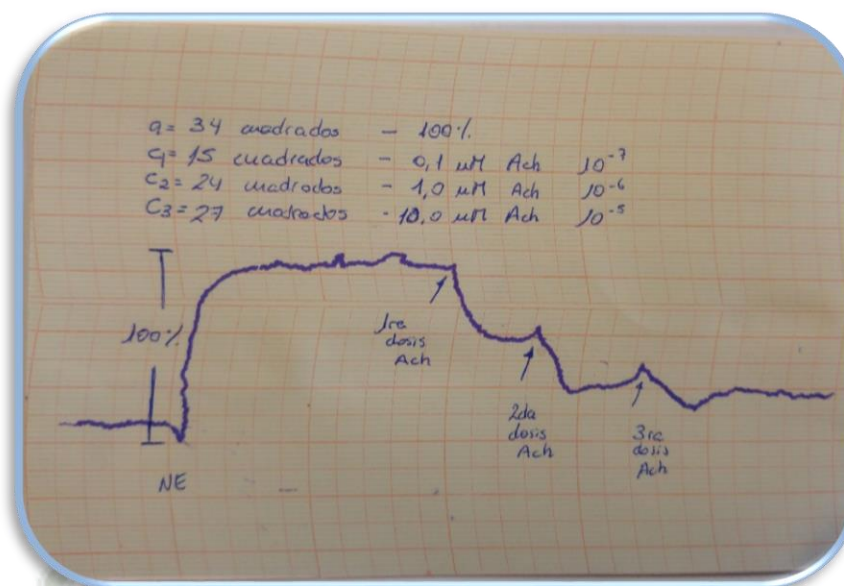 a= 34 cuadrados - 100%
C1= 15 cuadrados - 0,1 µM Ach 10⁻⁷
C2= 24 cuadrados - 1,0 µM Ach 10⁻⁶
C3= 27 cuadrados - 10,0 µM Ach 10⁻⁵
100%
1ra
dosis
Ach
2da
dosis
Ach
3ra
dosis
Ach
NE